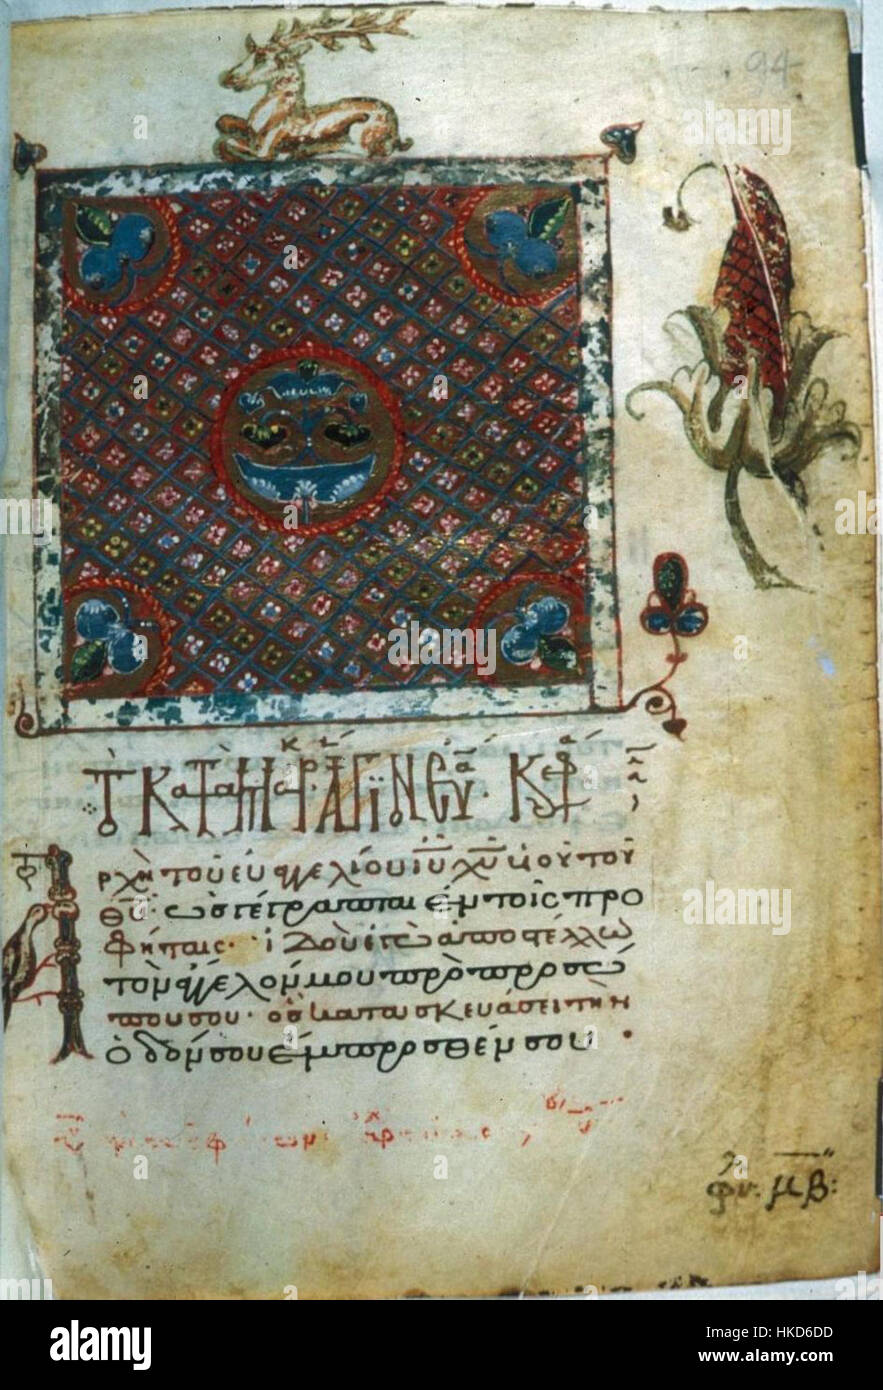 94
Τὸ Κατὰ Μάρκον ἅγιον εὐα. Κεφ
ρχὴ τοῦ εὐαγγελίου ιυ χυ υἱοῦ τοῦ
θυ· ὡς γέγραπται ἐν τοῖς προ
φήταις· ἰδοὺ ἐγὼ ἀποστέλλω
τὸν ἄγγελόν μου πρὸ προσώ
που σου· ὃς κατασκευάσει τὴν
ὁδόν σου ἔμπροσθέν σου
φυ. μβ:
a alamy stock photo
alamy
Image ID: HKD6DD
www.alamy.com